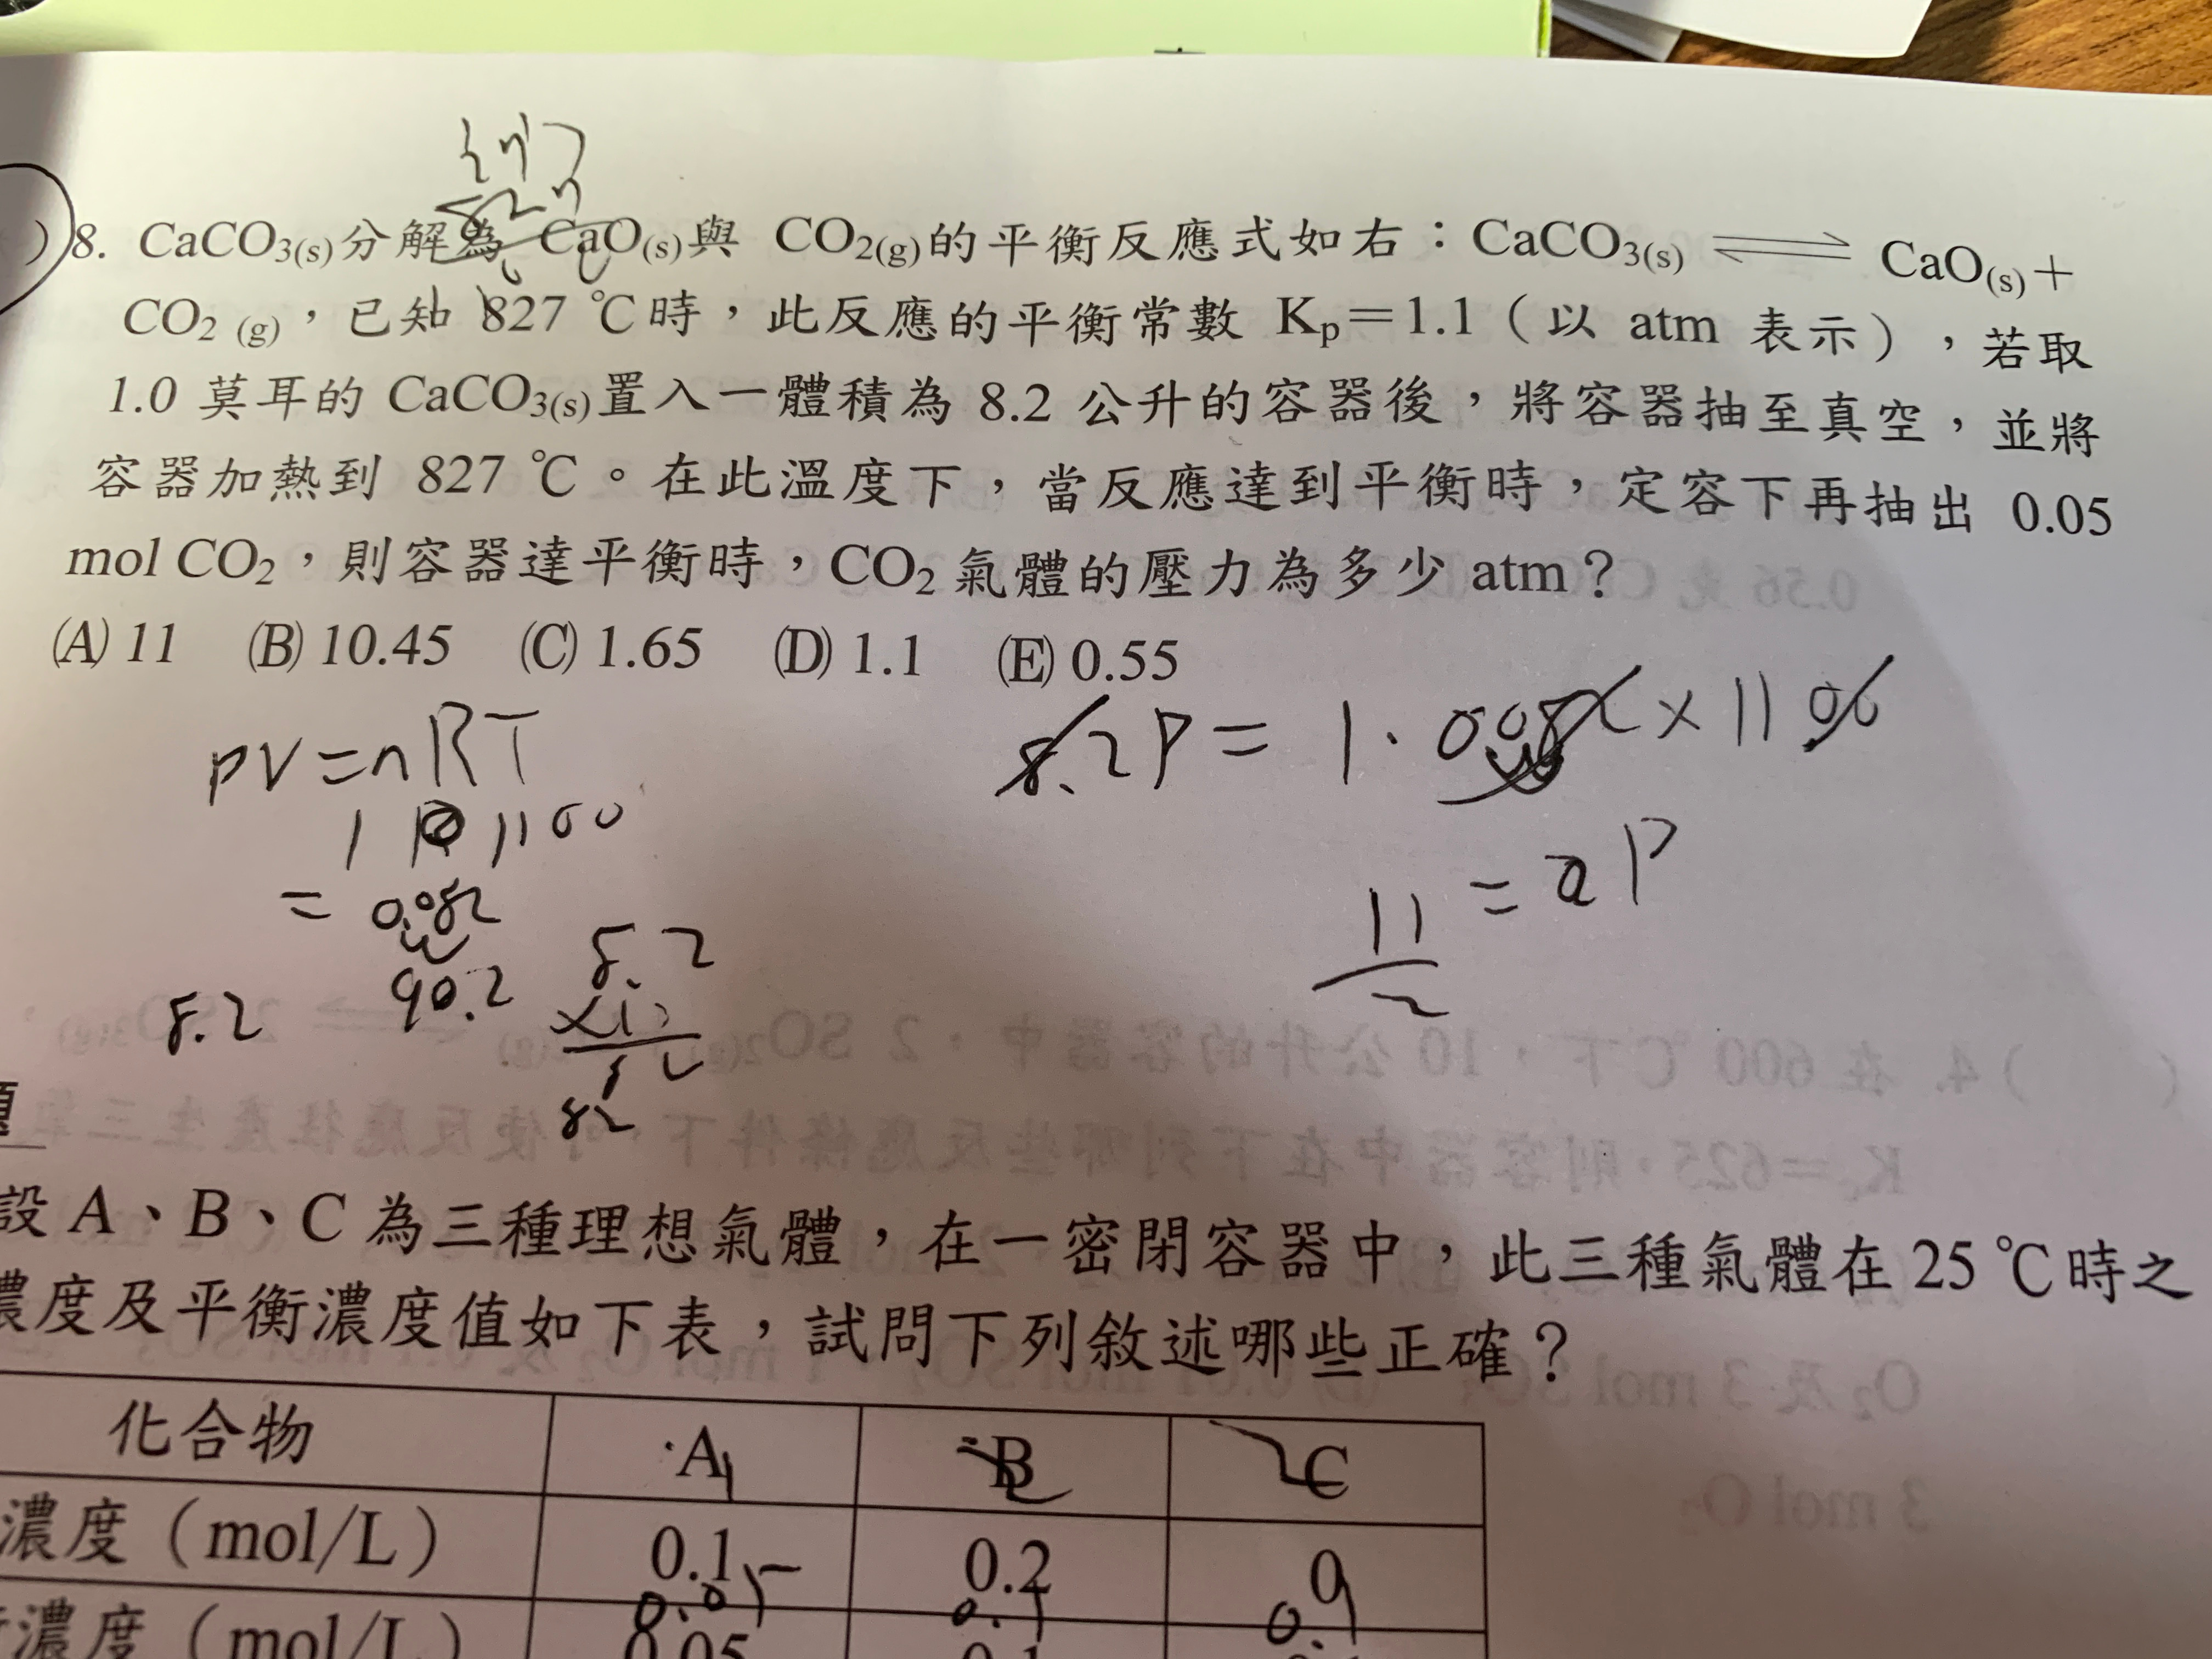 8. CaCO3(s)分解為 CaO(s)與 CO2(g)的平衡反應式如右：CaCO3(s) ⇌ CaO(s)+
CO2 (g)，已知 827 ℃時，此反應的平衡常數 Kp＝1.1（以 atm 表示），若取
1.0 莫耳的 CaCO3(s)置入一體積為 8.2 公升的容器後，將容器抽至真空，並將
容器加熱到 827 ℃。在此溫度下，當反應達到平衡時，定容下再抽出 0.05
mol CO2，則容器達平衡時，CO2 氣體的壓力為多少 atm？
(A) 11 (B) 10.45 (C) 1.65 (D) 1.1 (E) 0.55
PV=nRT
1100
= 0.082
90.2
8.2
8.2
82
8.2P = 1.
11/2 = P
題
設 A、B、C 為三種理想氣體，在一密閉容器中，此三種氣體在 25 ℃時之
濃度及平衡濃度值如下表，試問下列敘述哪些正確？
化合物 A B C
濃度（mol/L） 0.1 0.2 0
濃度（mol/L） 0.05 0.1